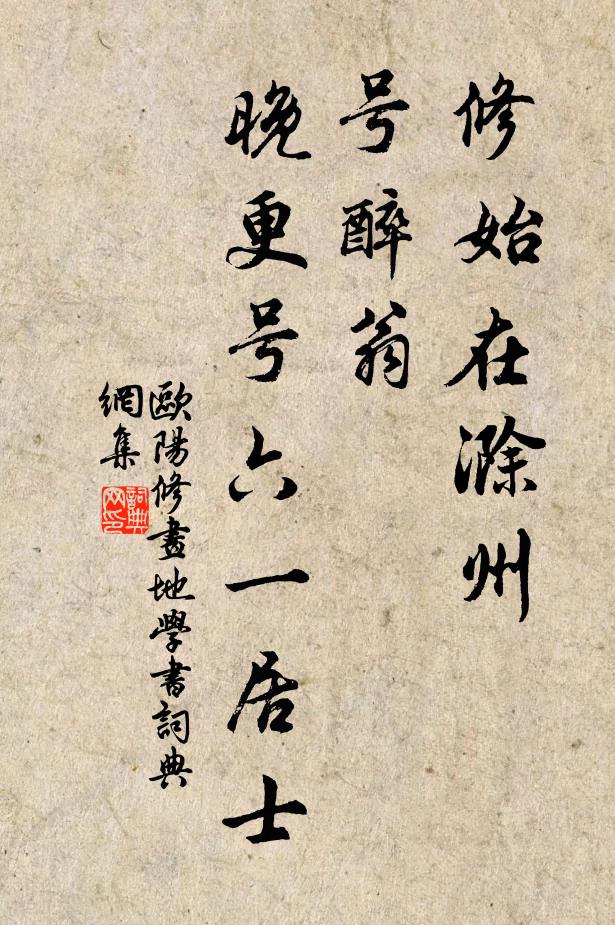 修始在滁州
号醉翁
晚更号六一居士
歐陽修畫地學書詞典
網集
詞典
网印